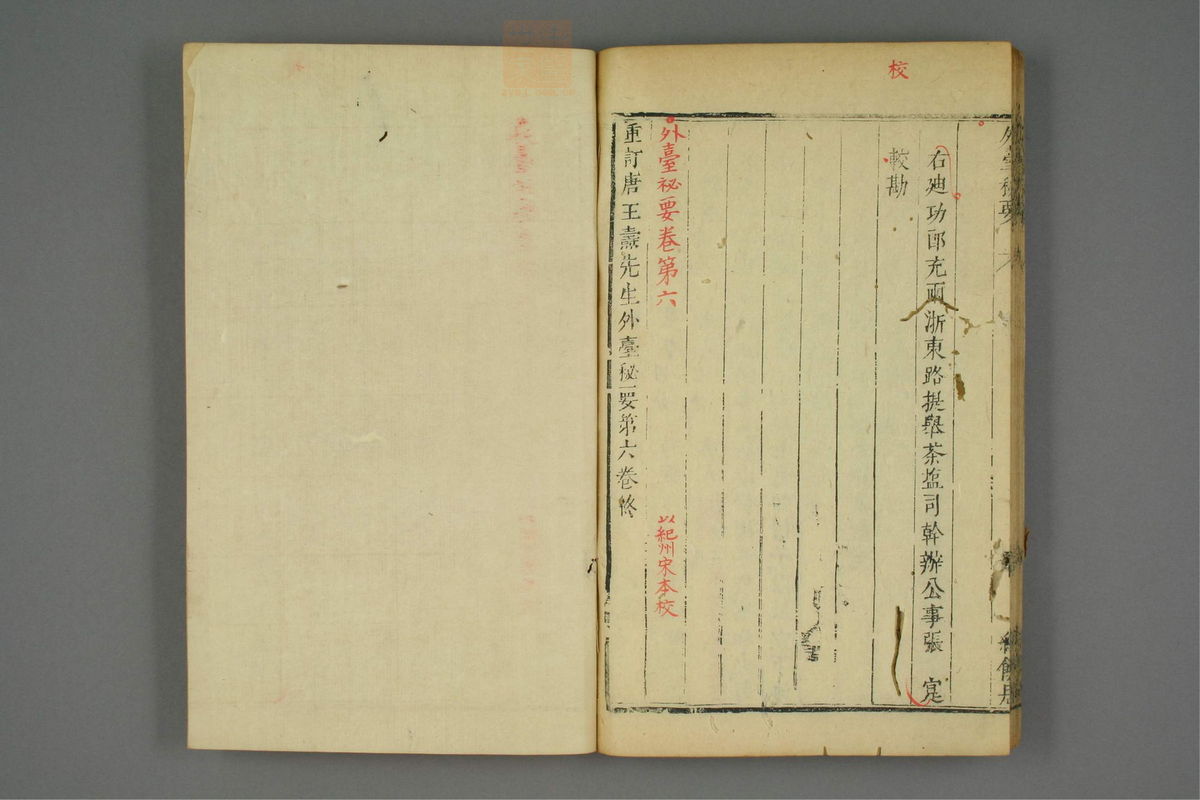 校
外臺秘要
右廸功郎充兩浙東路提舉茶塩司幹辦公事張 寔
較勘
外臺秘要卷第六 以紀州宋本校
重訂唐王燾先生外臺秘要第六卷終